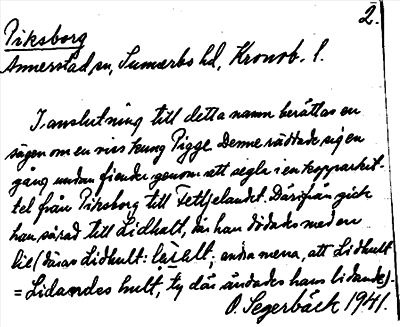 2.
Piksborg
Annerstad sn, Sunnerbo hd, Kronob. l.
I anslutning till detta namn berättas en
sägen om en viss kung Pigge. Denne räddade sig en
gång undan fiender genom att segla i en kopparkit-
tel från Piksborg till Tettjelandet. Därifrån gick
han sårad till Lidhult, där han dödades med en
lie (därav Lidhult: ; andra mena, att Lidhult
= Lidandes hult, ty där ändades hans lidande).
O. Segerbäck 1941.